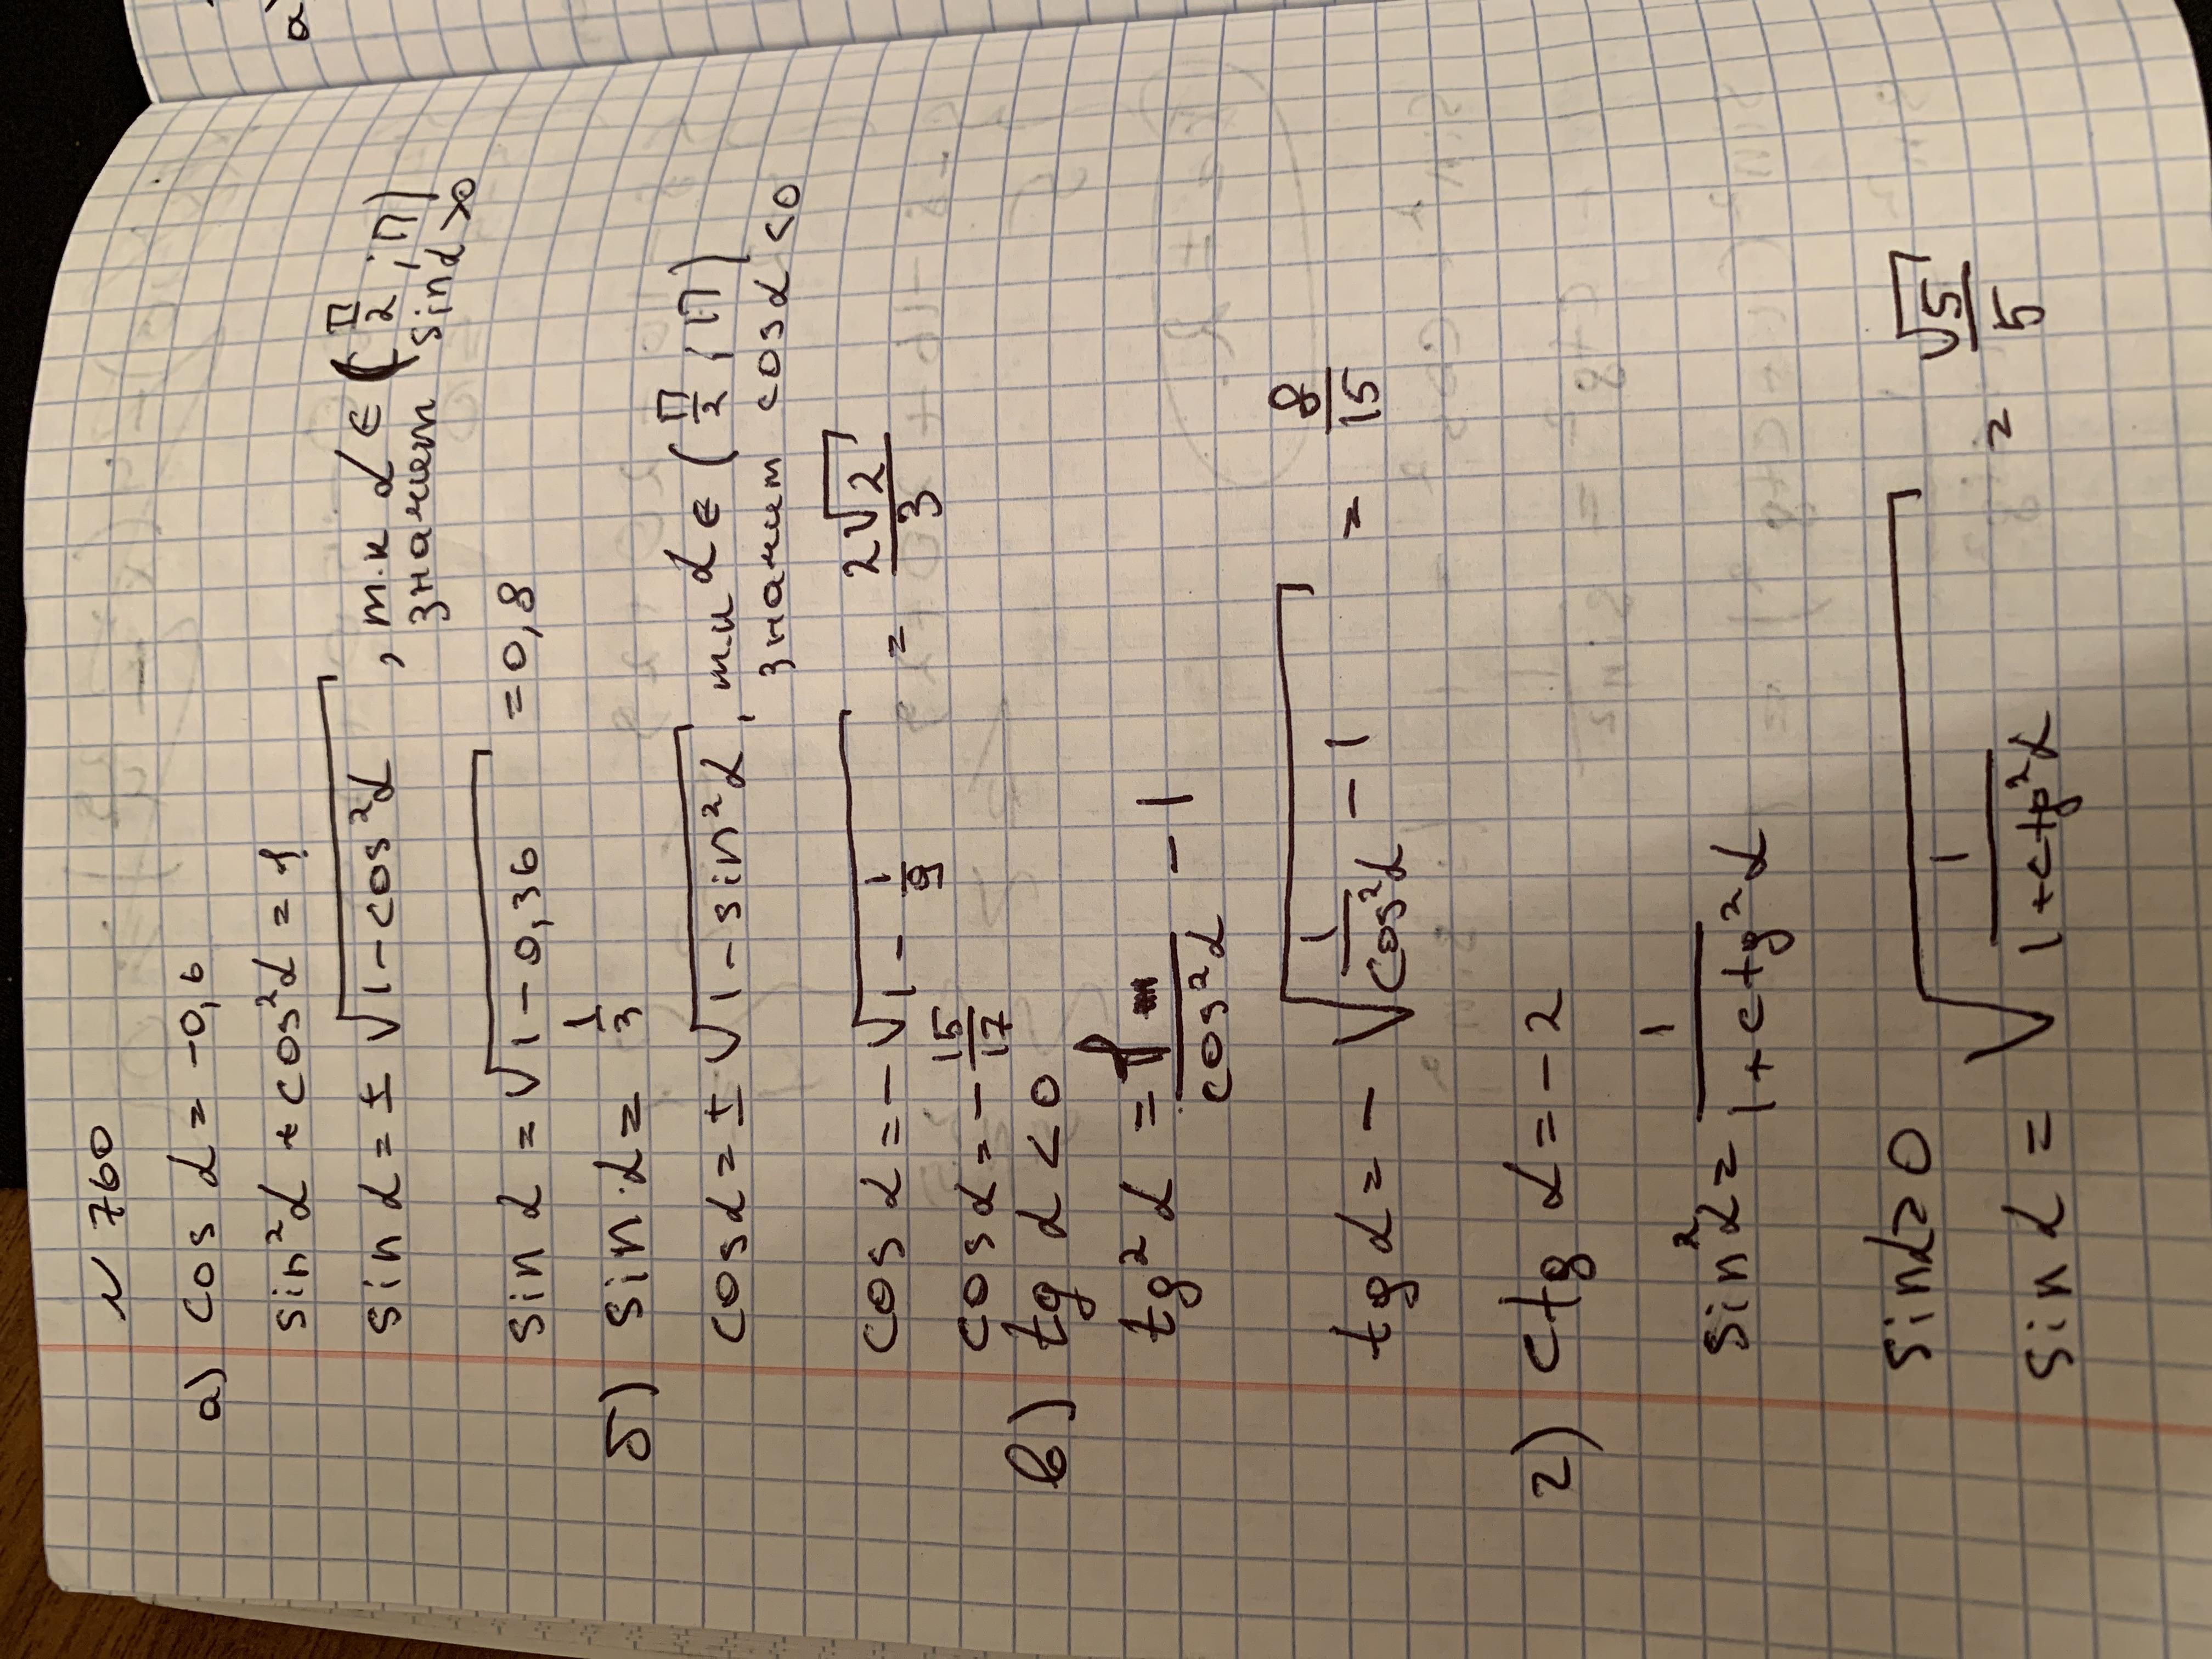 N 760
а) cos α = -0,6
sin²α + cos²α = 1
sin α = ± √(1 - cos²α) , т.к α ∈ (π/2 ; π)
значит sin α > 0
sin α = √(1 - 0,36) = 0,8
б) sin α = 1/3
cos α = ± √(1 - sin²α) , т.к α ∈ (π/2 ; π)
значит cos α < 0
cos α = - √(1 - 1/9) = 2√2/3
cos α = - 15/17
в) tg α < 0
tg²α = 1/cos²α - 1
tg α = - √(1/cos²α - 1) = 8/15
г) ctg α = -2
sin²α = 1/(1 + ctg²α)
sin α > 0
sin α = √(1/(1 + ctg²α)) = √5/5